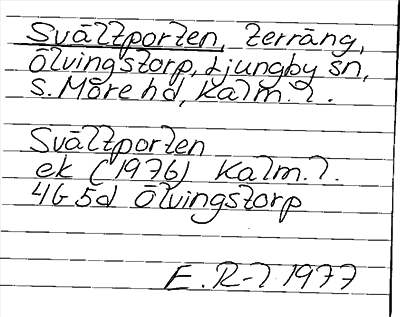 Svältporten, terräng,
Ölvingstorp, Ljungby sn,
S. Möre hd, Kalm. l.
Svältporten
ek (1976) Kalm. l.
4G5d Ölvingstorp
E. R-l 1977